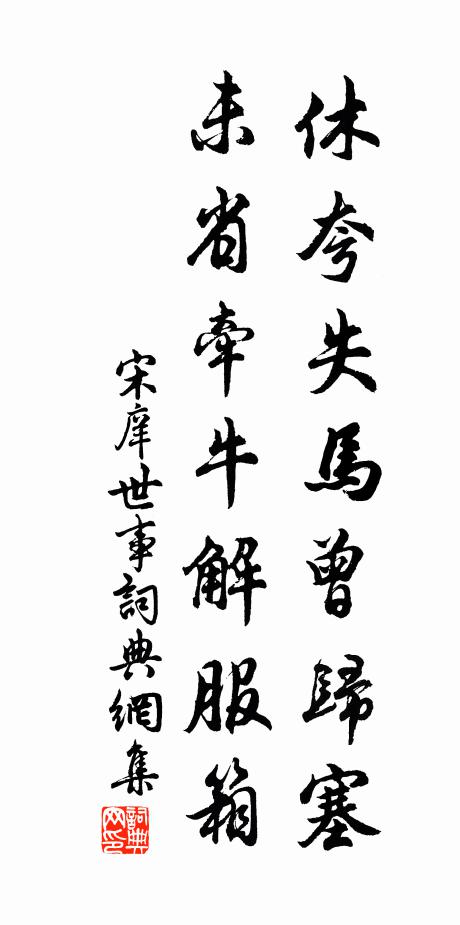 休夸失馬曾歸塞
未省牽牛解服箱
宋庠世事詞典網集
詞典網印